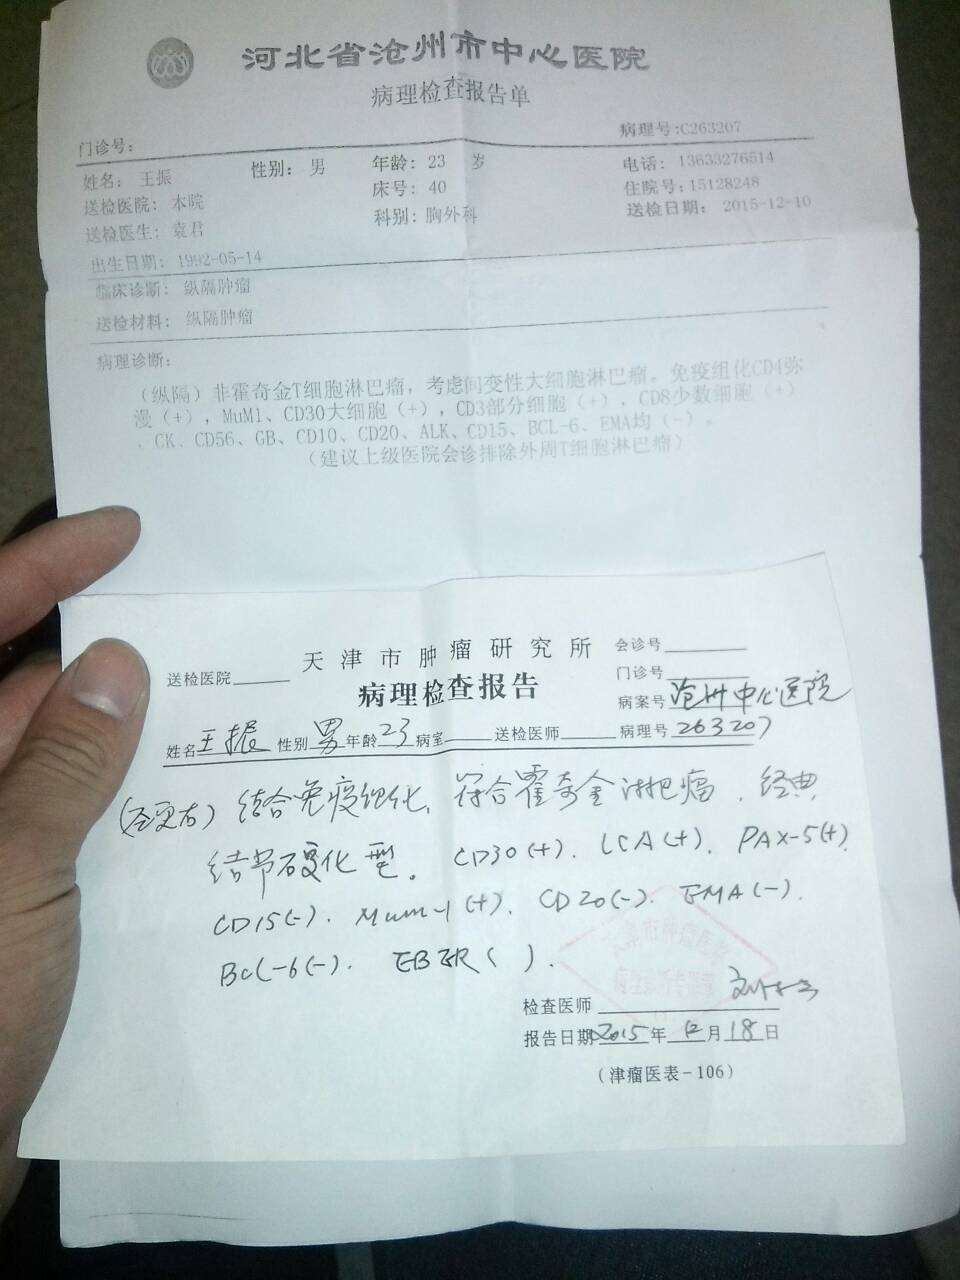 河北省沧州市中心医院
病理检查报告单
门诊号: 病理号:C263207
姓名: 王振 性别: 男 年龄: 23 岁 电话: 13633276514
送检医院: 本院 床号: 40 住院号:15128248
送检医生: 袁君 科别: 胸外科 送检日期: 2015-12-10
出生日期: 1992-05-14
临床诊断: 纵隔肿瘤
送检材料: 纵隔肿瘤
病理诊断:
(纵隔)非霍奇金T细胞淋巴瘤,考虑间变性大细胞淋巴瘤。免疫组化CD4弥
漫(+),MuM1、CD30大细胞(+),CD3部分细胞(+),CD8少数细胞(+)
、CK、CD56、GB、CD10、CD20、ALK、CD15、BCL-6、EMA均(-)。
(建议上级医院会诊排除外周T细胞淋巴瘤)
天津市肿瘤研究所
会诊号
送检医院
病理检查报告
门诊号
病案号 沧州中心医院
姓名 王振 性别 男 年龄 23 病室 送检医师 病理号 263207
结合免疫组化、符合霍奇金淋巴瘤,经典
结节硬化型。CD30(+). LCA(+). PAX-5(+).
CD15(-). Mum-1(+). CD20(-). EMA(-).
Bcl-6(-). EBER( ).
检查医师
报告日期 2015年 12月 18日
(津瘤医表-106)